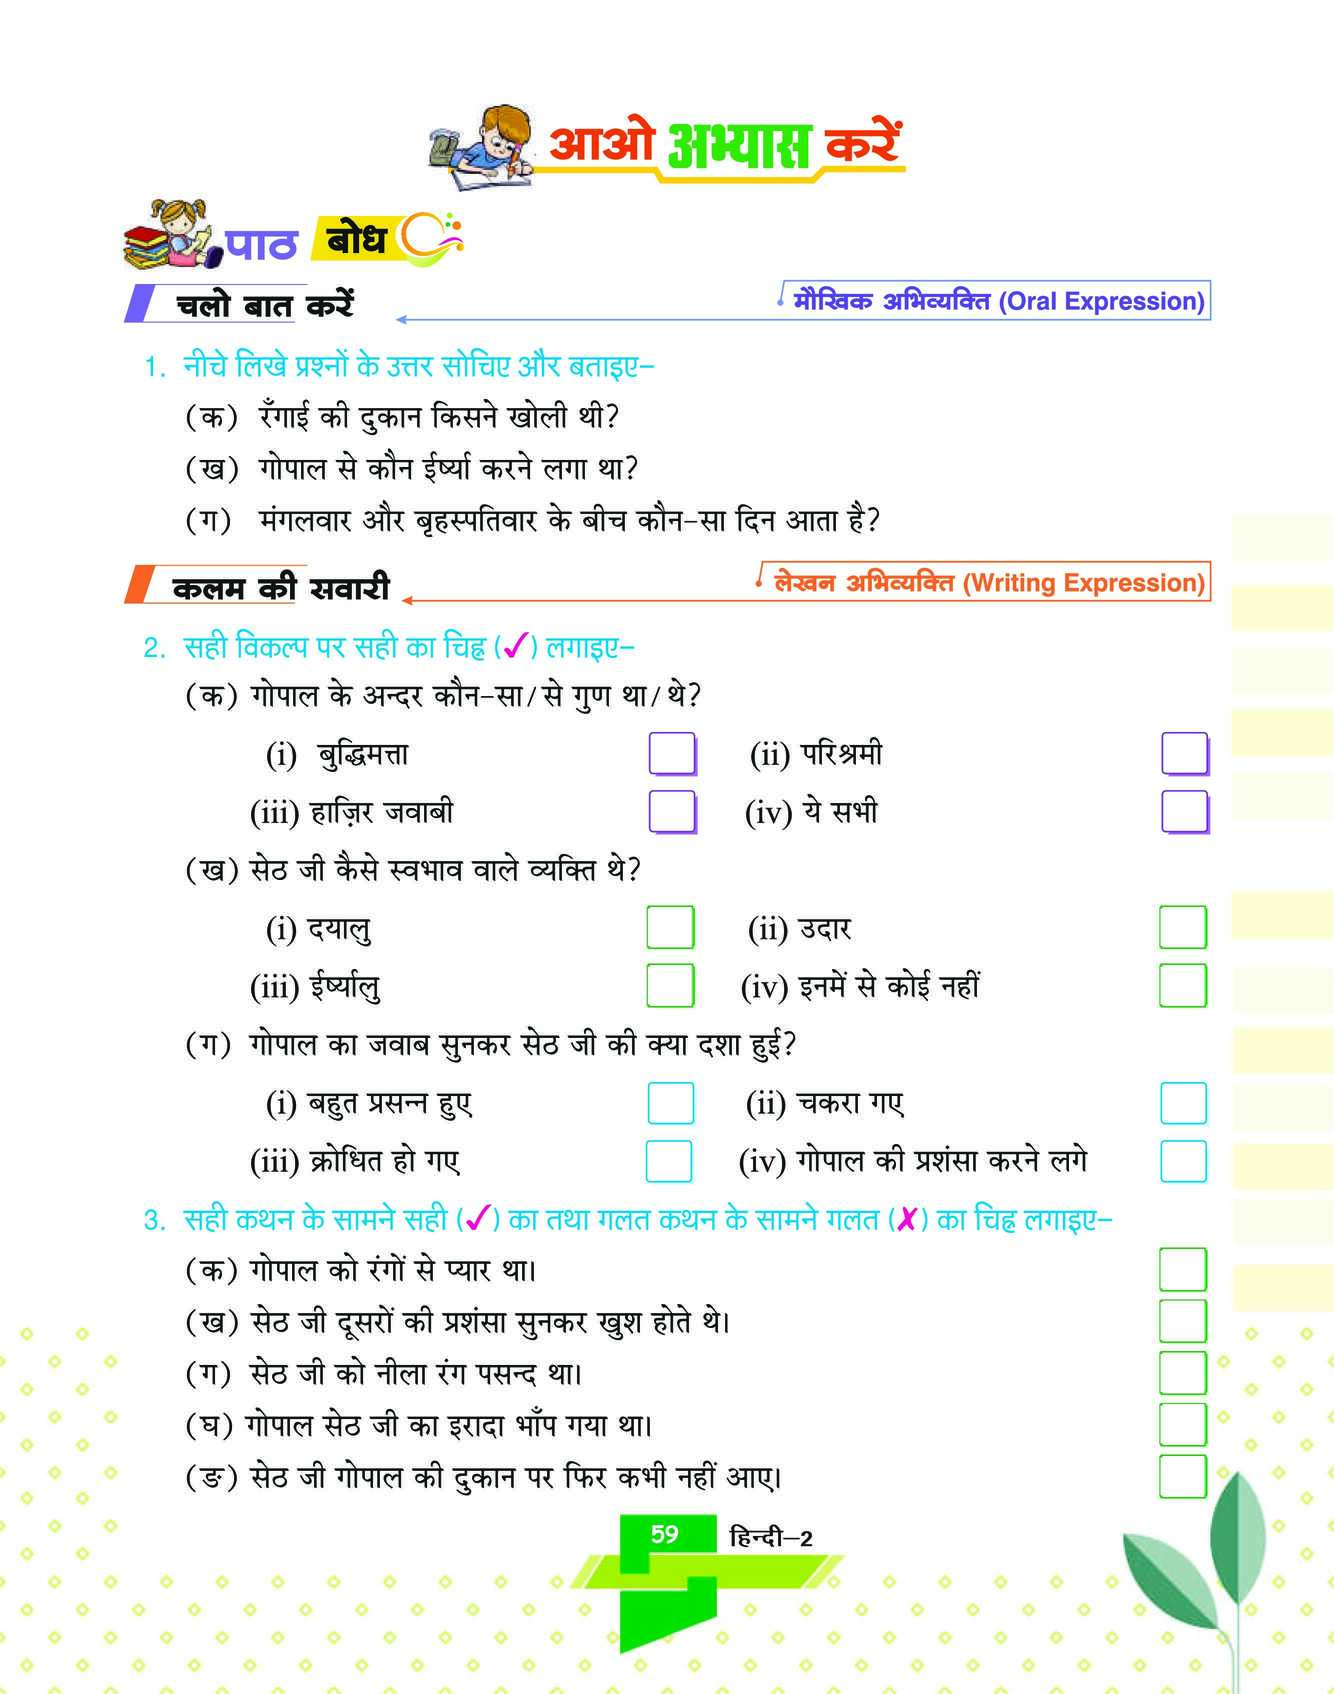 आओ अभ्यास करें
पाठ बोध
चलो बात करें
मौखिक अभिव्यक्ति (Oral Expression)
1. नीचे लिखे प्रश्नों के उत्तर सोचिए और बताइए–
(क) रँगाई की दुकान किसने खोली थी?
(ख) गोपाल से कौन ईर्ष्या करने लगा था?
(ग) मंगलवार और बृहस्पतिवार के बीच कौन-सा दिन आता है?
कलम की सवारी
लेखन अभिव्यक्ति (Writing Expression)
2. सही विकल्प पर सही का चिह्न (✓) लगाइए–
(क) गोपाल के अन्दर कौन-सा/से गुण था/थे?
(i) बुद्धिमत्ता (ii) परिश्रमी
(iii) हाज़िर जवाबी (iv) ये सभी
(ख) सेठ जी कैसे स्वभाव वाले व्यक्ति थे?
(i) दयालु (ii) उदार
(iii) ईर्ष्यालु (iv) इनमें से कोई नहीं
(ग) गोपाल का जवाब सुनकर सेठ जी की क्या दशा हुई?
(i) बहुत प्रसन्न हुए (ii) चकरा गए
(iii) क्रोधित हो गए (iv) गोपाल की प्रशंसा करने लगे
3. सही कथन के सामने सही (✓) का तथा गलत कथन के सामने गलत (✗) का चिह्न लगाइए–
(क) गोपाल को रंगों से प्यार था।
(ख) सेठ जी दूसरों की प्रशंसा सुनकर खुश होते थे।
(ग) सेठ जी को नीला रंग पसन्द था।
(घ) गोपाल सेठ जी का इरादा भाँप गया था।
(ङ) सेठ जी गोपाल की दुकान पर फिर कभी नहीं आए।
59 हिन्दी–2